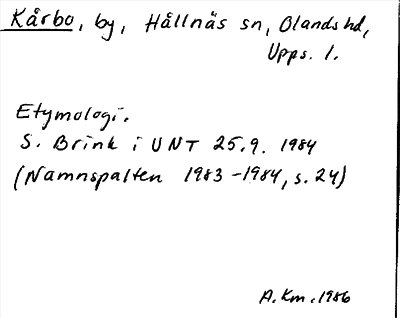 Kårbo, by, Hållnäs sn, Olands hd,
Upps. l.
Etymologi.
S. Brink i UNT 25.9. 1984
(Namnspalten 1983-1984, s. 24)
A. Km. 1986